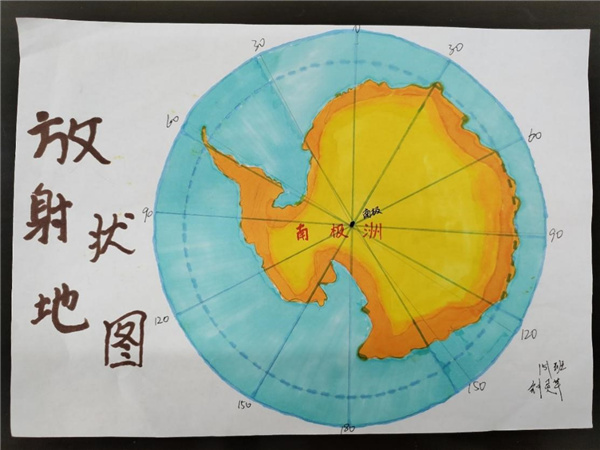 放
射状
地图
0
30
30
60
60
90
90
120
120
150
150
180
南极
南极洲